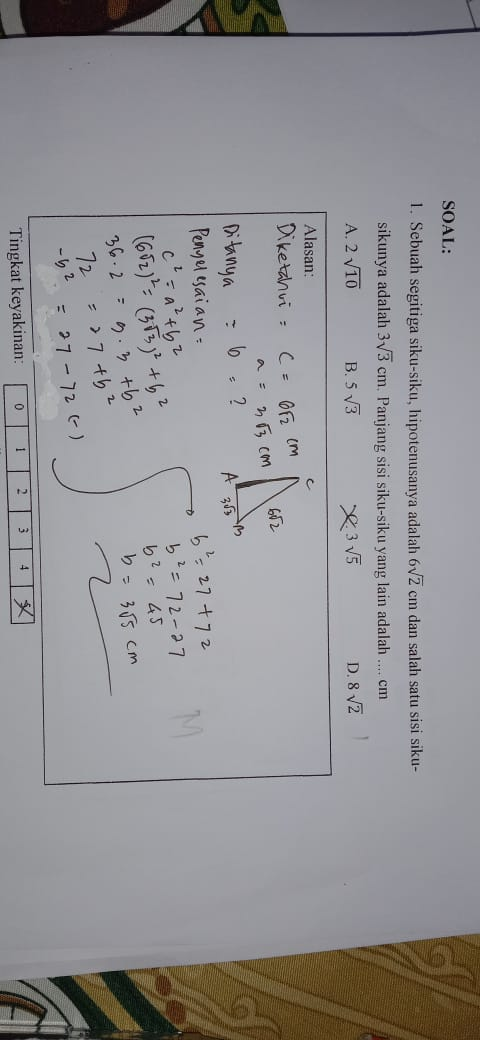 SOAL:
1. Sebuah segitiga siku-siku, hipotenusanya adalah 6√2 cm dan salah satu sisi siku-
sikunya adalah 3√3 cm. Panjang sisi siku-siku yang lain adalah .... cm
A. 2√10 B. 5√3 C. 3√5 D. 8√2
Alasan:
Diketahui = C = 6√2 cm
a = 3√3 cm
C
6√2
A 3√3 B
Ditanya = b = ?
Penyelesaian =
c² = a² + b²
(6√2)² = (3√3)² + b²
36.2 = 9.3 + b²
72 = 27 + b²
-b² = 27 - 72 (-)
b² = 27 + 72
b² = 72 - 27
b² = 45
b = 3√5 cm
M
Tingkat keyakinan: 0 1 2 3 4 5